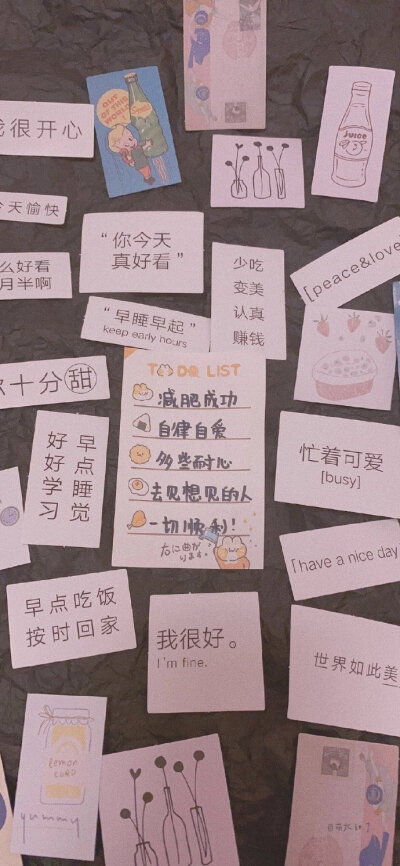 OUT OF THIS WORLD
我很开心
JUICE
今天愉快
“你今天
真好看”
么好看
月半啊
少吃
变美
认真
赚钱
[peace&love]
“早睡早起”
keep early hours
十分甜
TO DO LIST
减肥成功
自律自爱
多些耐心
去见想见的人
一切顺利!
早点睡觉
好好学习
忙着可爱
[busy]
「have a nice day
早点吃饭
按时回家
我很好。
I'm fine.
世界如此美
Lemon
CURD
yummy